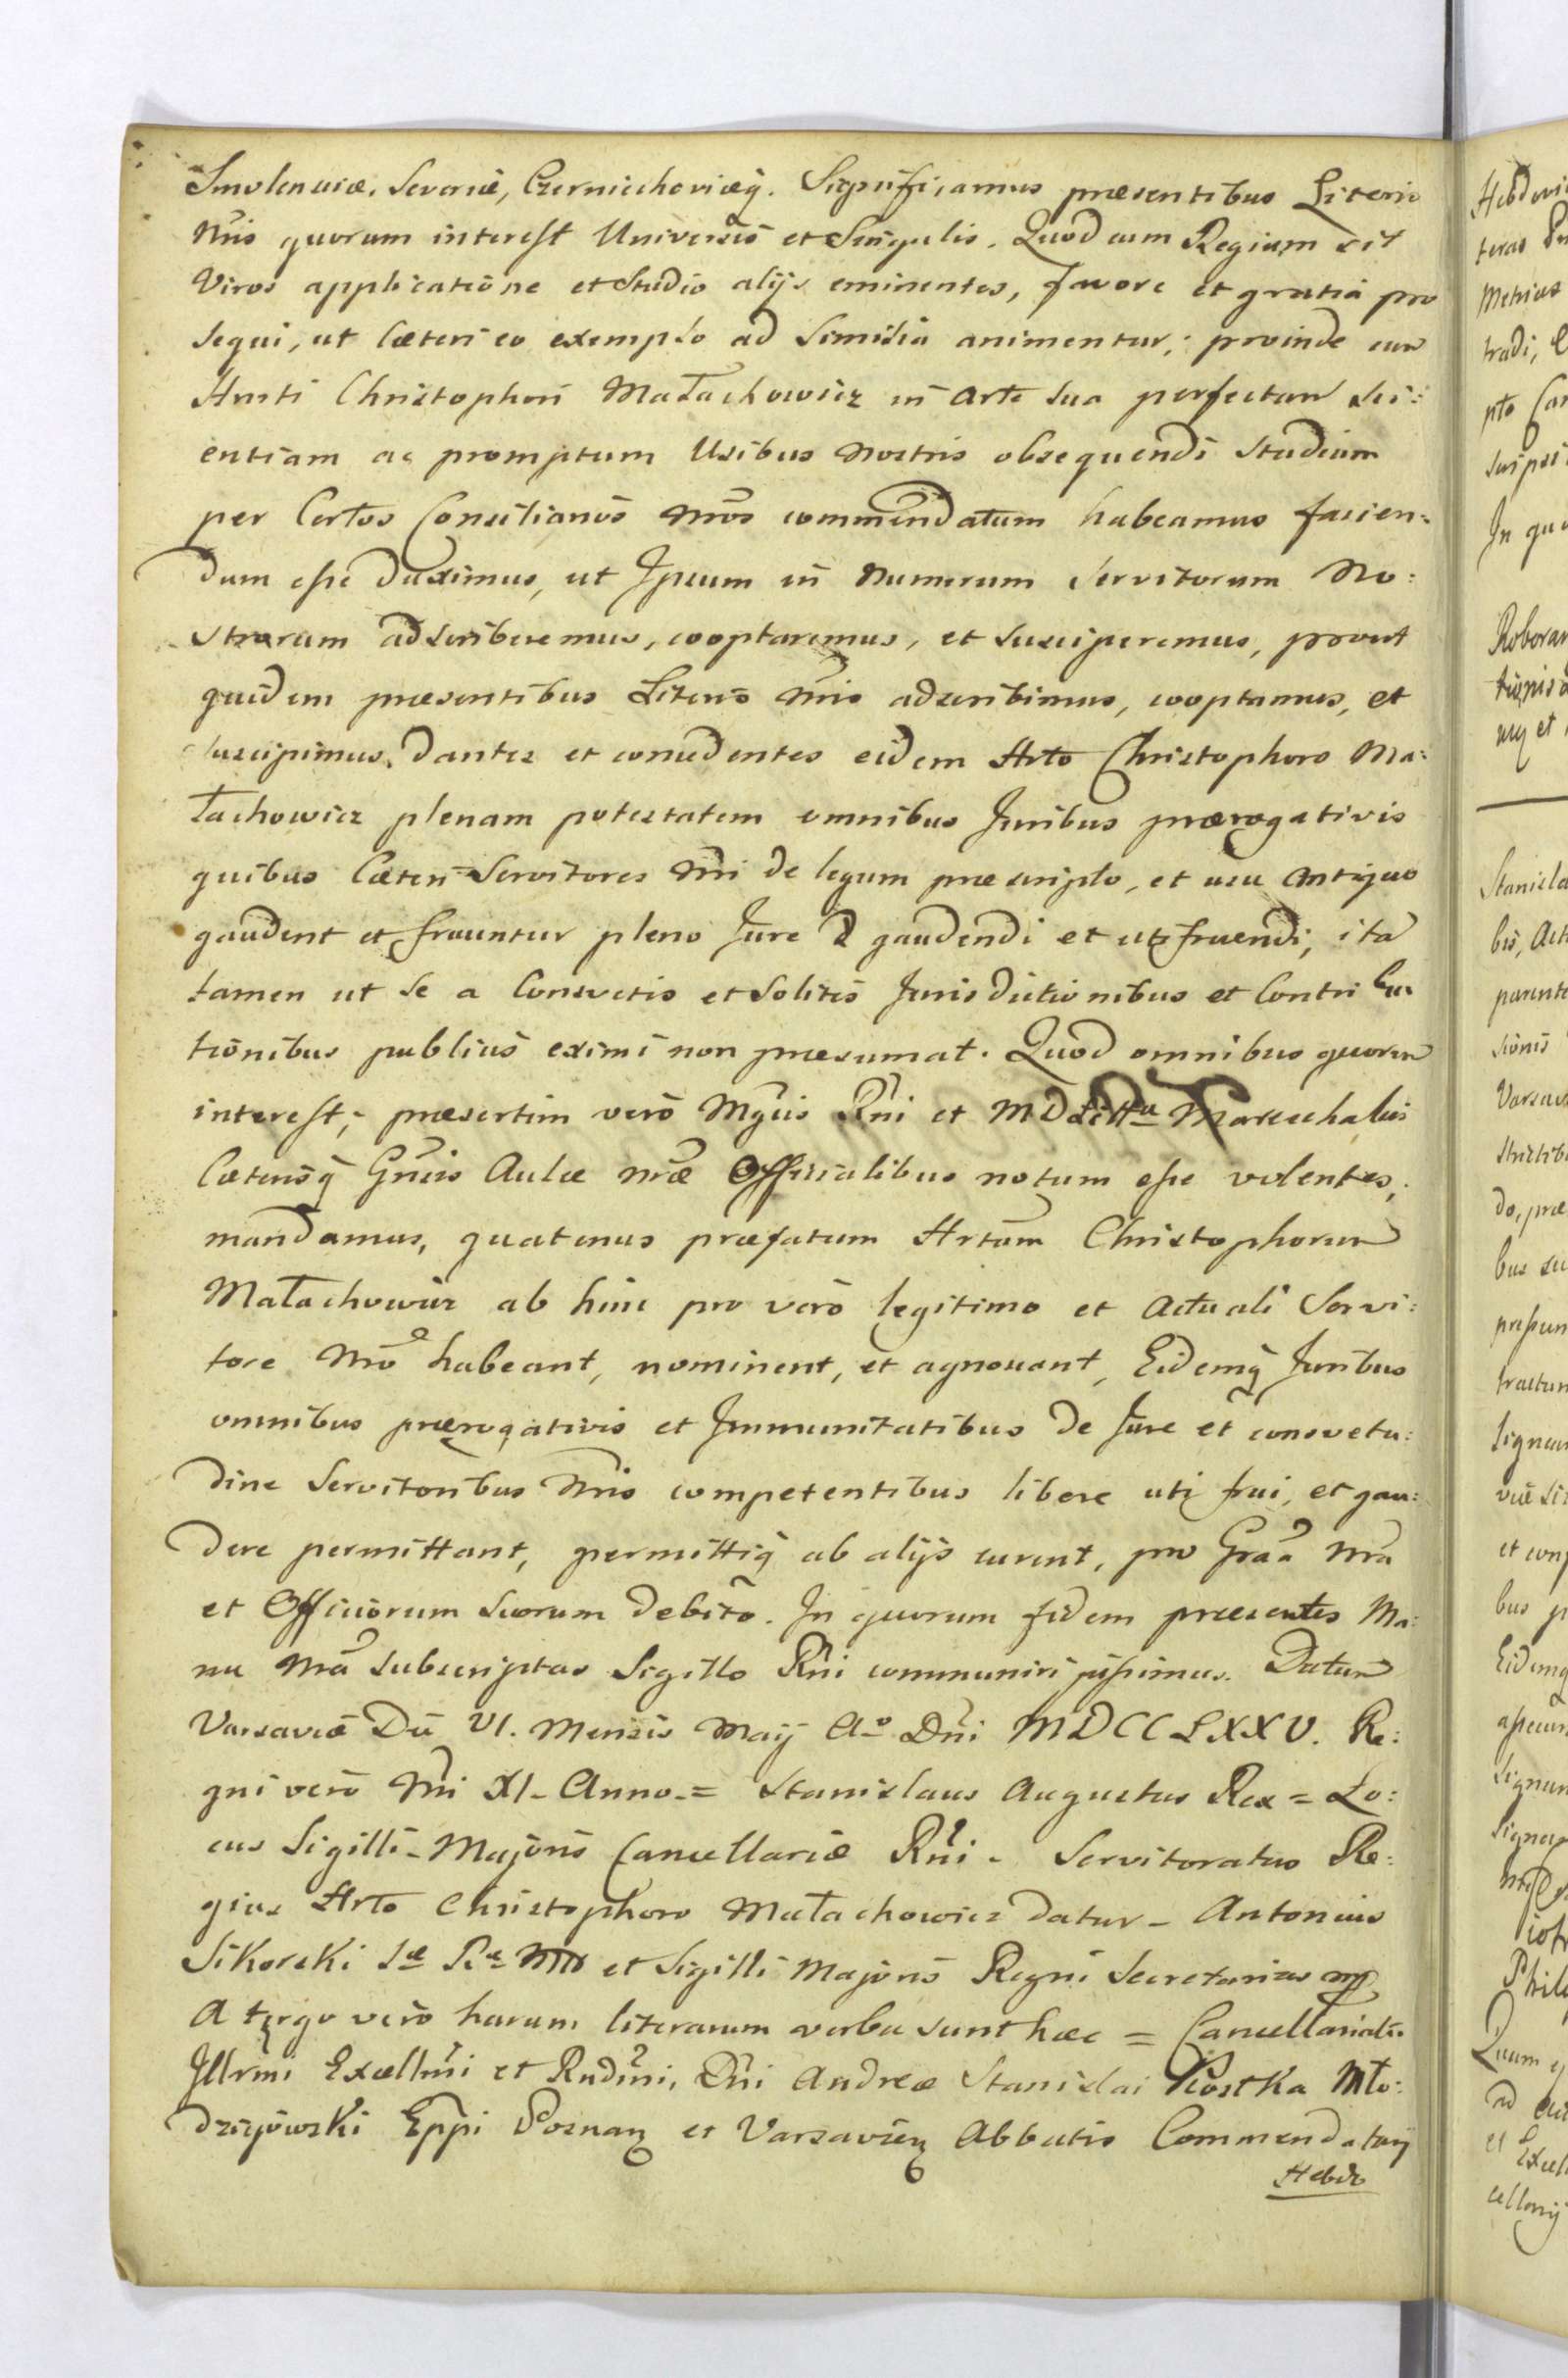 Smolenciæ, Severiæ, Czerniechoviæq. Significamus præsentibus Literis
Nris quorum interest Universis et Singulis. Quod cum Regium sit
Viros applicatione et Studio alijs eminentes, favore et gratia pro
sequi, ut Cæteri eo exemplo ad Similia animentur; proinde cum
Hnsti Christophori Małachowicz in Arte sua perfectam Sci:
entiam ac promptum Usibus Nostris obsequendi Studium
per Certos Consiliarios Nros commendatum habeamus facien:
dum esse duximus, ut Ipsum in Numerum Servitorum No:
strorum adscriberemus, cooptaremus, et susciperemus, prout
quidem præsentibus Literis Nris adscribimus, cooptamus, et
suscipimus. Dantes et concedentes eidem Hrto Christophoro Ma:
łachowicz plenam potestatem omnibus Juribus prærogativis
quibus Cæteri Servitores Nri de legum præscripto, et usu Antiquo
gaudent et fruuntur pleno Jure gaudendi et uti fruendi, ita
tamen ut se a Consvetis et Solitis Jurisdictionibus et Contribu
tionibus publicis eximi non præsumat. Quod omnibus quorum
interest, præsertim vero Mgcis Rni et M D Littu Mareschalcis
Cæterisq Gnris Aulæ Nræ Officialibus notum esse volentes,
mandamus, quatenus præfatum Hrtum Christophorum
Małachowicz ab hinc pro vero legitimo et Actuali Servi:
tore Nro habeant, nominent, et agnoscant, Eidemq Juribus
omnibus prærogativis et Immunitatibus de Jure et consvetu:
dine Servitoribus Nris competentibus libere uti frui, et gau:
dere permittant, permittiq ab alijs curent, pro Graa Nra
et Officiorum Suorum debito. In quorum fidem præsentes Ma:
nu Nra subscriptas Sigillo Rni communiri jussimus. Datum
Varsaviæ Die VI. Mensis Maij Ao Dni MDCCLXXV. Re:
gni vero Nri XI Anno = Stanislaus Augustus Rex = Lo:
cus Sigilli - Majoris Cancellariæ Rni - Servitoratus Re:
gius Hrto Christophoro Małachowicz datur - Antonius
Sikorski Sæ Ræ Mtis et Sigilli Majoris Regni Secretarius mp
A tergo vero harum literarum verba sunt hæc = Cancellariatu
Illrmi Excellmi et Rndmi, Dni Andreæ Stanislai Kostka Mło:
dziejowski Eppi Posnan et Varsavien Abbatis Commendatarij
Hebdo